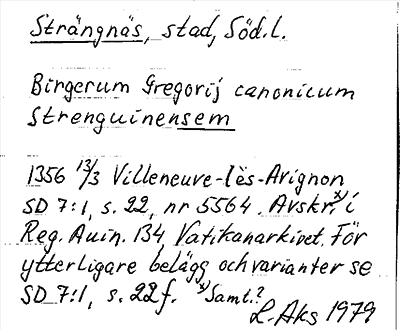 Strängnäs, stad, Söd.l.
Birgerum Gregorij canonicum
Strenguinensem
1356 13/3 Villeneuve-lès-Avignon
SD 7:1, s. 22, nr 5564. Avskr.x) i
Reg. Auin. 134, Vatikanarkivet. För
ytterligare belägg och varianter se
SD 7:1, s. 22 f. x) Saml.?
L. Aks 1979